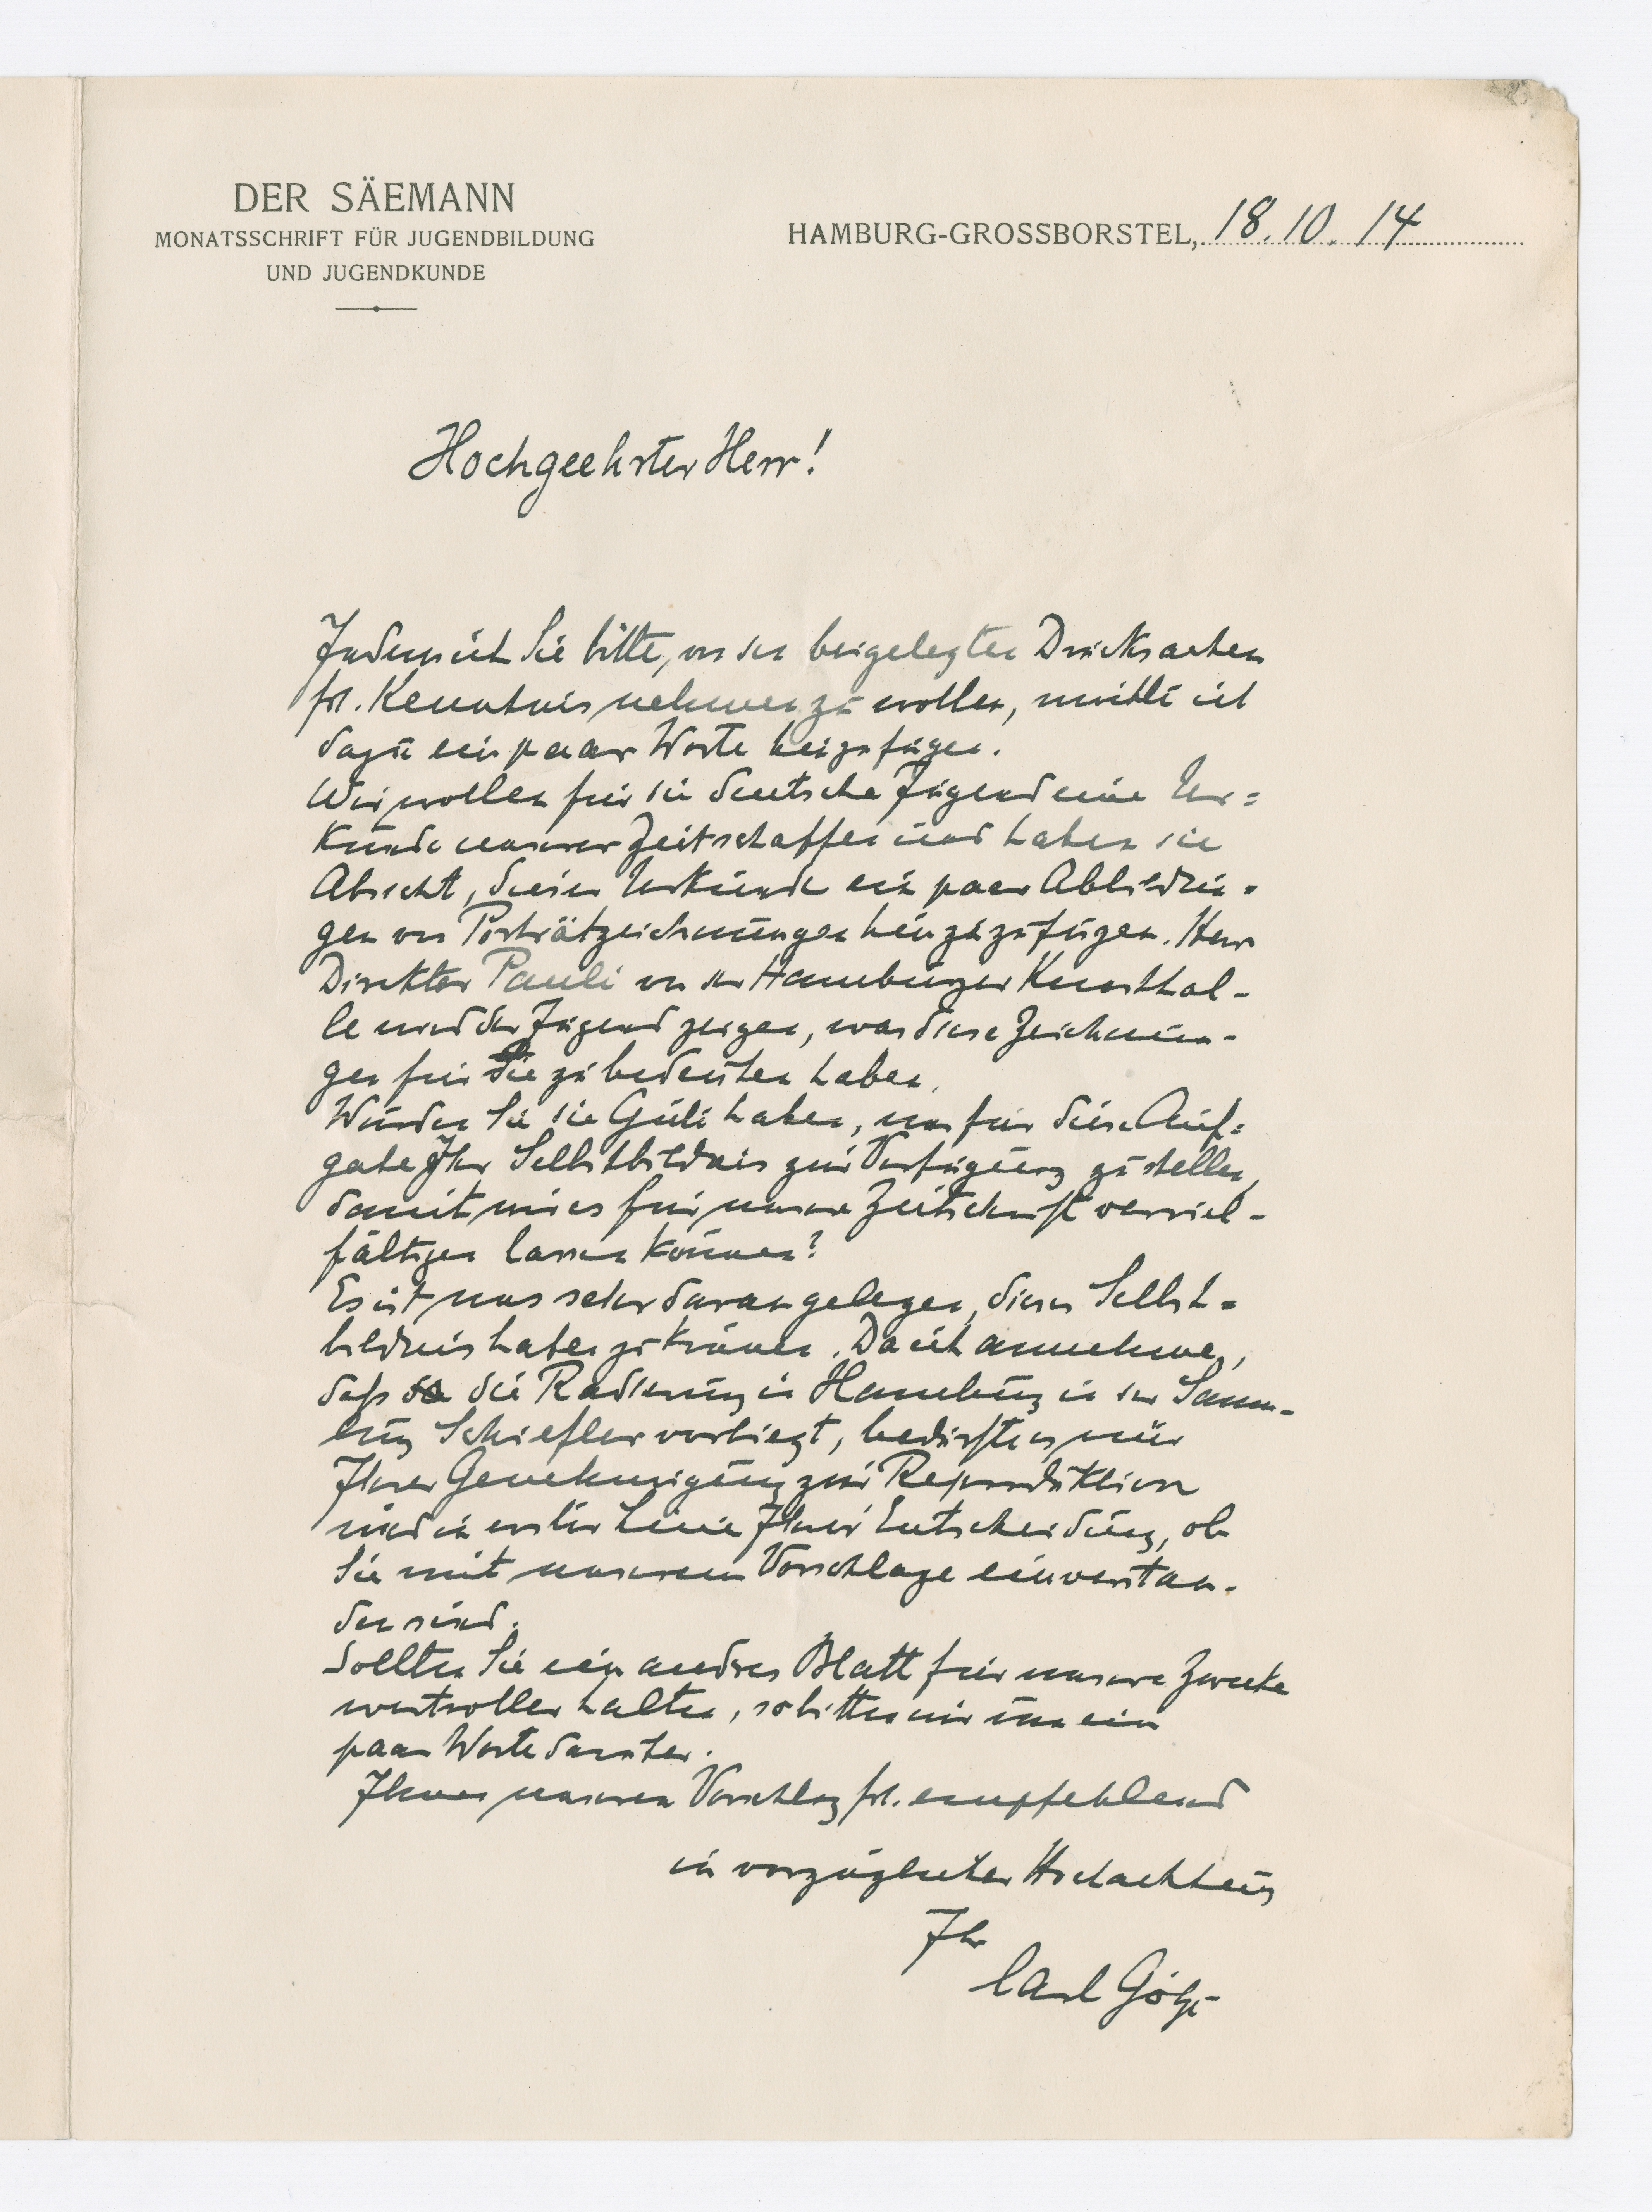 DER SÄEMANN
MONATSSCHRIFT FÜR JUGENDBILDUNG
UND JUGENDKUNDE
HAMBURG-GROSSBORSTEL, 18.10.14
Hochgeehrter Herr!
Indem ich Sie bitte, von den beigelegten Drucksachen
frl. Kenntnis nehmen zu wollen, möchte ich
dazu ein paar Worte beizufügen.
Wir wollen für die deutsche Jugend eine Ur=
kunde unserer Zeit schaffen und haben die
Absicht, dieser Urkunde ein paar Abbildun=
gen von Porträtzeichnungen hinzuzufügen. Herr
Direktor Pauli von der Hamburger Kunsthal-
le wird der Jugend zeigen, was diese Zeichnun-
gen für Sie zu bedeuten haben.
Würden Sie die Güte haben, uns für diese Auf=
gabe Ihr Selbstbildnis zur Verfügung zu stellen,
damit wir es für unsere Zeitschrift verviel-
fältigen lassen können?
Es ist uns sehr daran gelegen, dieses Selbst=
bildnis haben zu können. Da ich annehme,
daß die Radierung in Hamburg in der Samm-
lung Schiefler vorliegt, bedürfte es nur
Ihrer Genehmigung zur Reproduktion
und in erster Linie Ihrer Entscheidung, ob
Sie mit unserem Vorschlage einverstan-
den sind.
Sollten Sie ein andres Blatt für unsere Zwecke
wertvoller halten, so bitten wir um ein
paar Worte darüber.
Ihnen unseren Vorschlag frl. empfehlend
in vorzüglicher Hochachtung
Ihr
Carl Götze